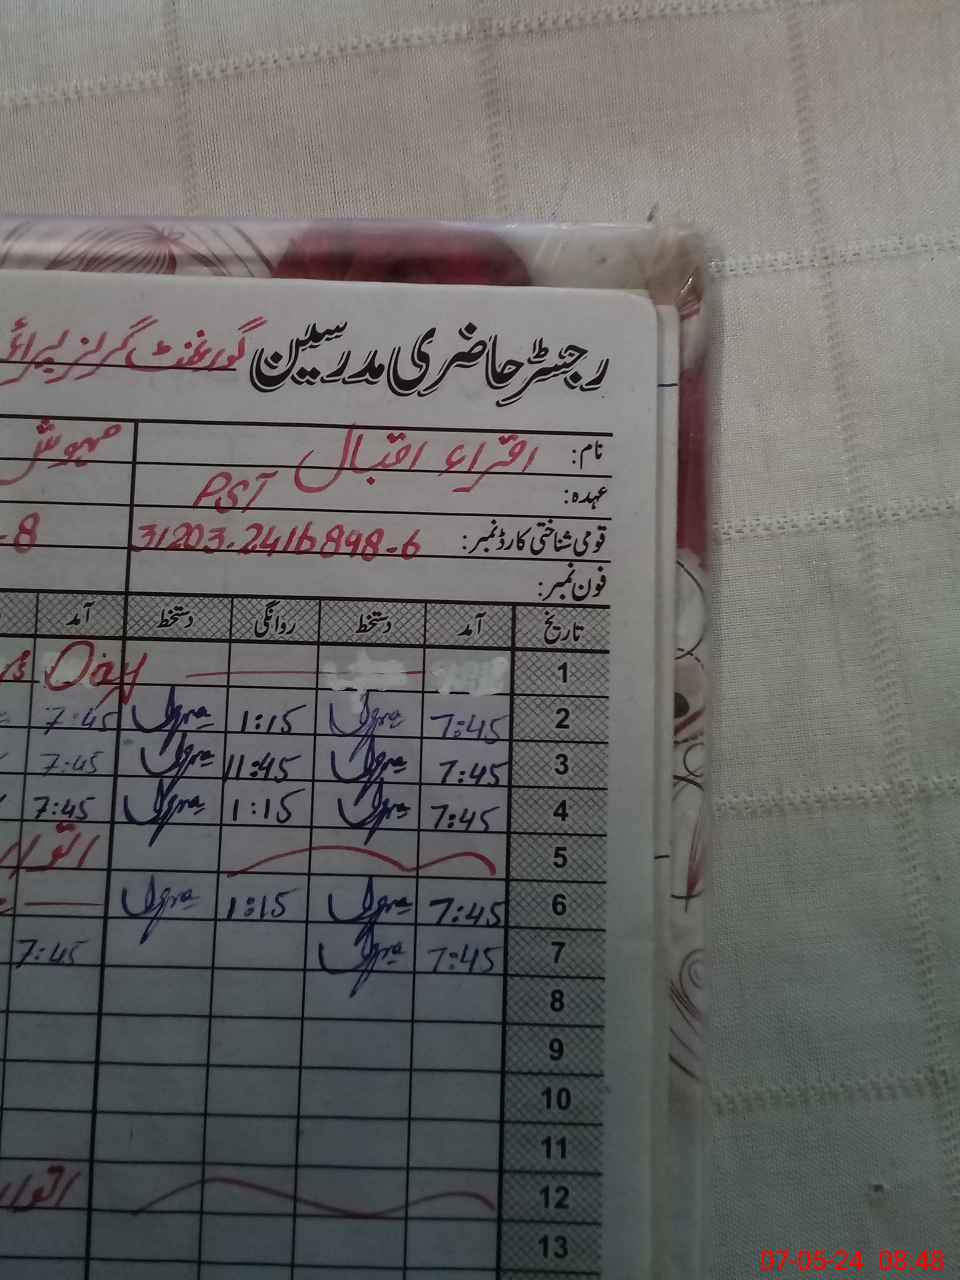 رجسٹر حاضری مدرسین گورنمنٹ گرلز پرائ
نام: اقراء اقبال مہوش
عہدہ: PST
قومی شناختی کارڈ نمبر: 31203-2416898-6 -8
فون نمبر:
تاریخ آمد دستخط روانگی دستخط آمد
1 Day
2 7:45 Iqra 1:15 Iqra 7:45
3 7:45 Iqra 11:45 Iqra 7:45
4 7:45 Iqra 1:15 Iqra 7:45
5 اتوار
6 7:45 Iqra 1:15 Iqra
7 7:45 Iqra 7:45
8
9
10
11
12 اتوار
13
07-05-24 08:48